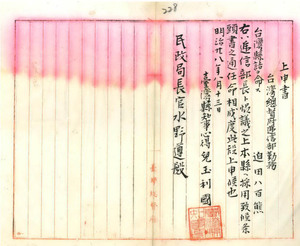 228
上申書
台湾總督府逓信部勤務
迫田八百熊
台湾縣
右ハ逓信部長ト协議之上本縣ヘ採用致候条
頭書之通任命相成度此段上申候也
明治廿八年八月十三日
臺灣縣知事心得兒玉利國
民政局長官水野遵殿